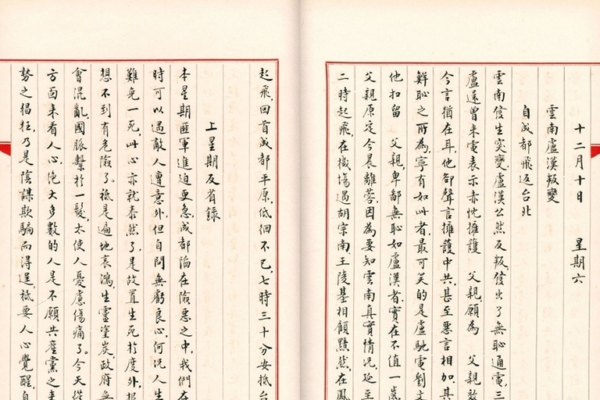 十二月十日　星期六
雲南盧漢叛變
自成都飛返台北
雲南發生突變，盧漢公然反叛，發出了無恥通電，三
盧還曾來電表示赤忱擁護　父親，願為　父親效
今言猶在耳，他卻聲言擁護中共，甚至惡言相加，其
鮮恥之所為，寧有如此者，最可笑的是盧馳電劉文
他扣留　父親，卑鄙無恥如盧漢者，實在不值一嘆
父親原定今晨離蓉，因為要知雲南真實情況，延至
二時起飛，在機場遇胡宗南王陵基相顧黯然，在鳳
起飛，回首成都平原，低徊不已，七時三十分安抵台
上星期反省錄
本星期匪軍進迫更急，成都陷在險惡之中，我們在
時可以遇敵人遭意外，但自問無虧良心，何況人生
難免一死，此心亦就泰然了。是故置生死於度外，根
想不到有危險了。祗是遍地哀鴻，生靈塗炭，政府無
會混亂，國脈繫於一髮，太使人憂慮傷痛了。今天從
方面來看人心，絕大多數的人是不願共產黨之來
勢之猖狂，乃是陰謀欺騙而得逞，祗要人心覺醒，自